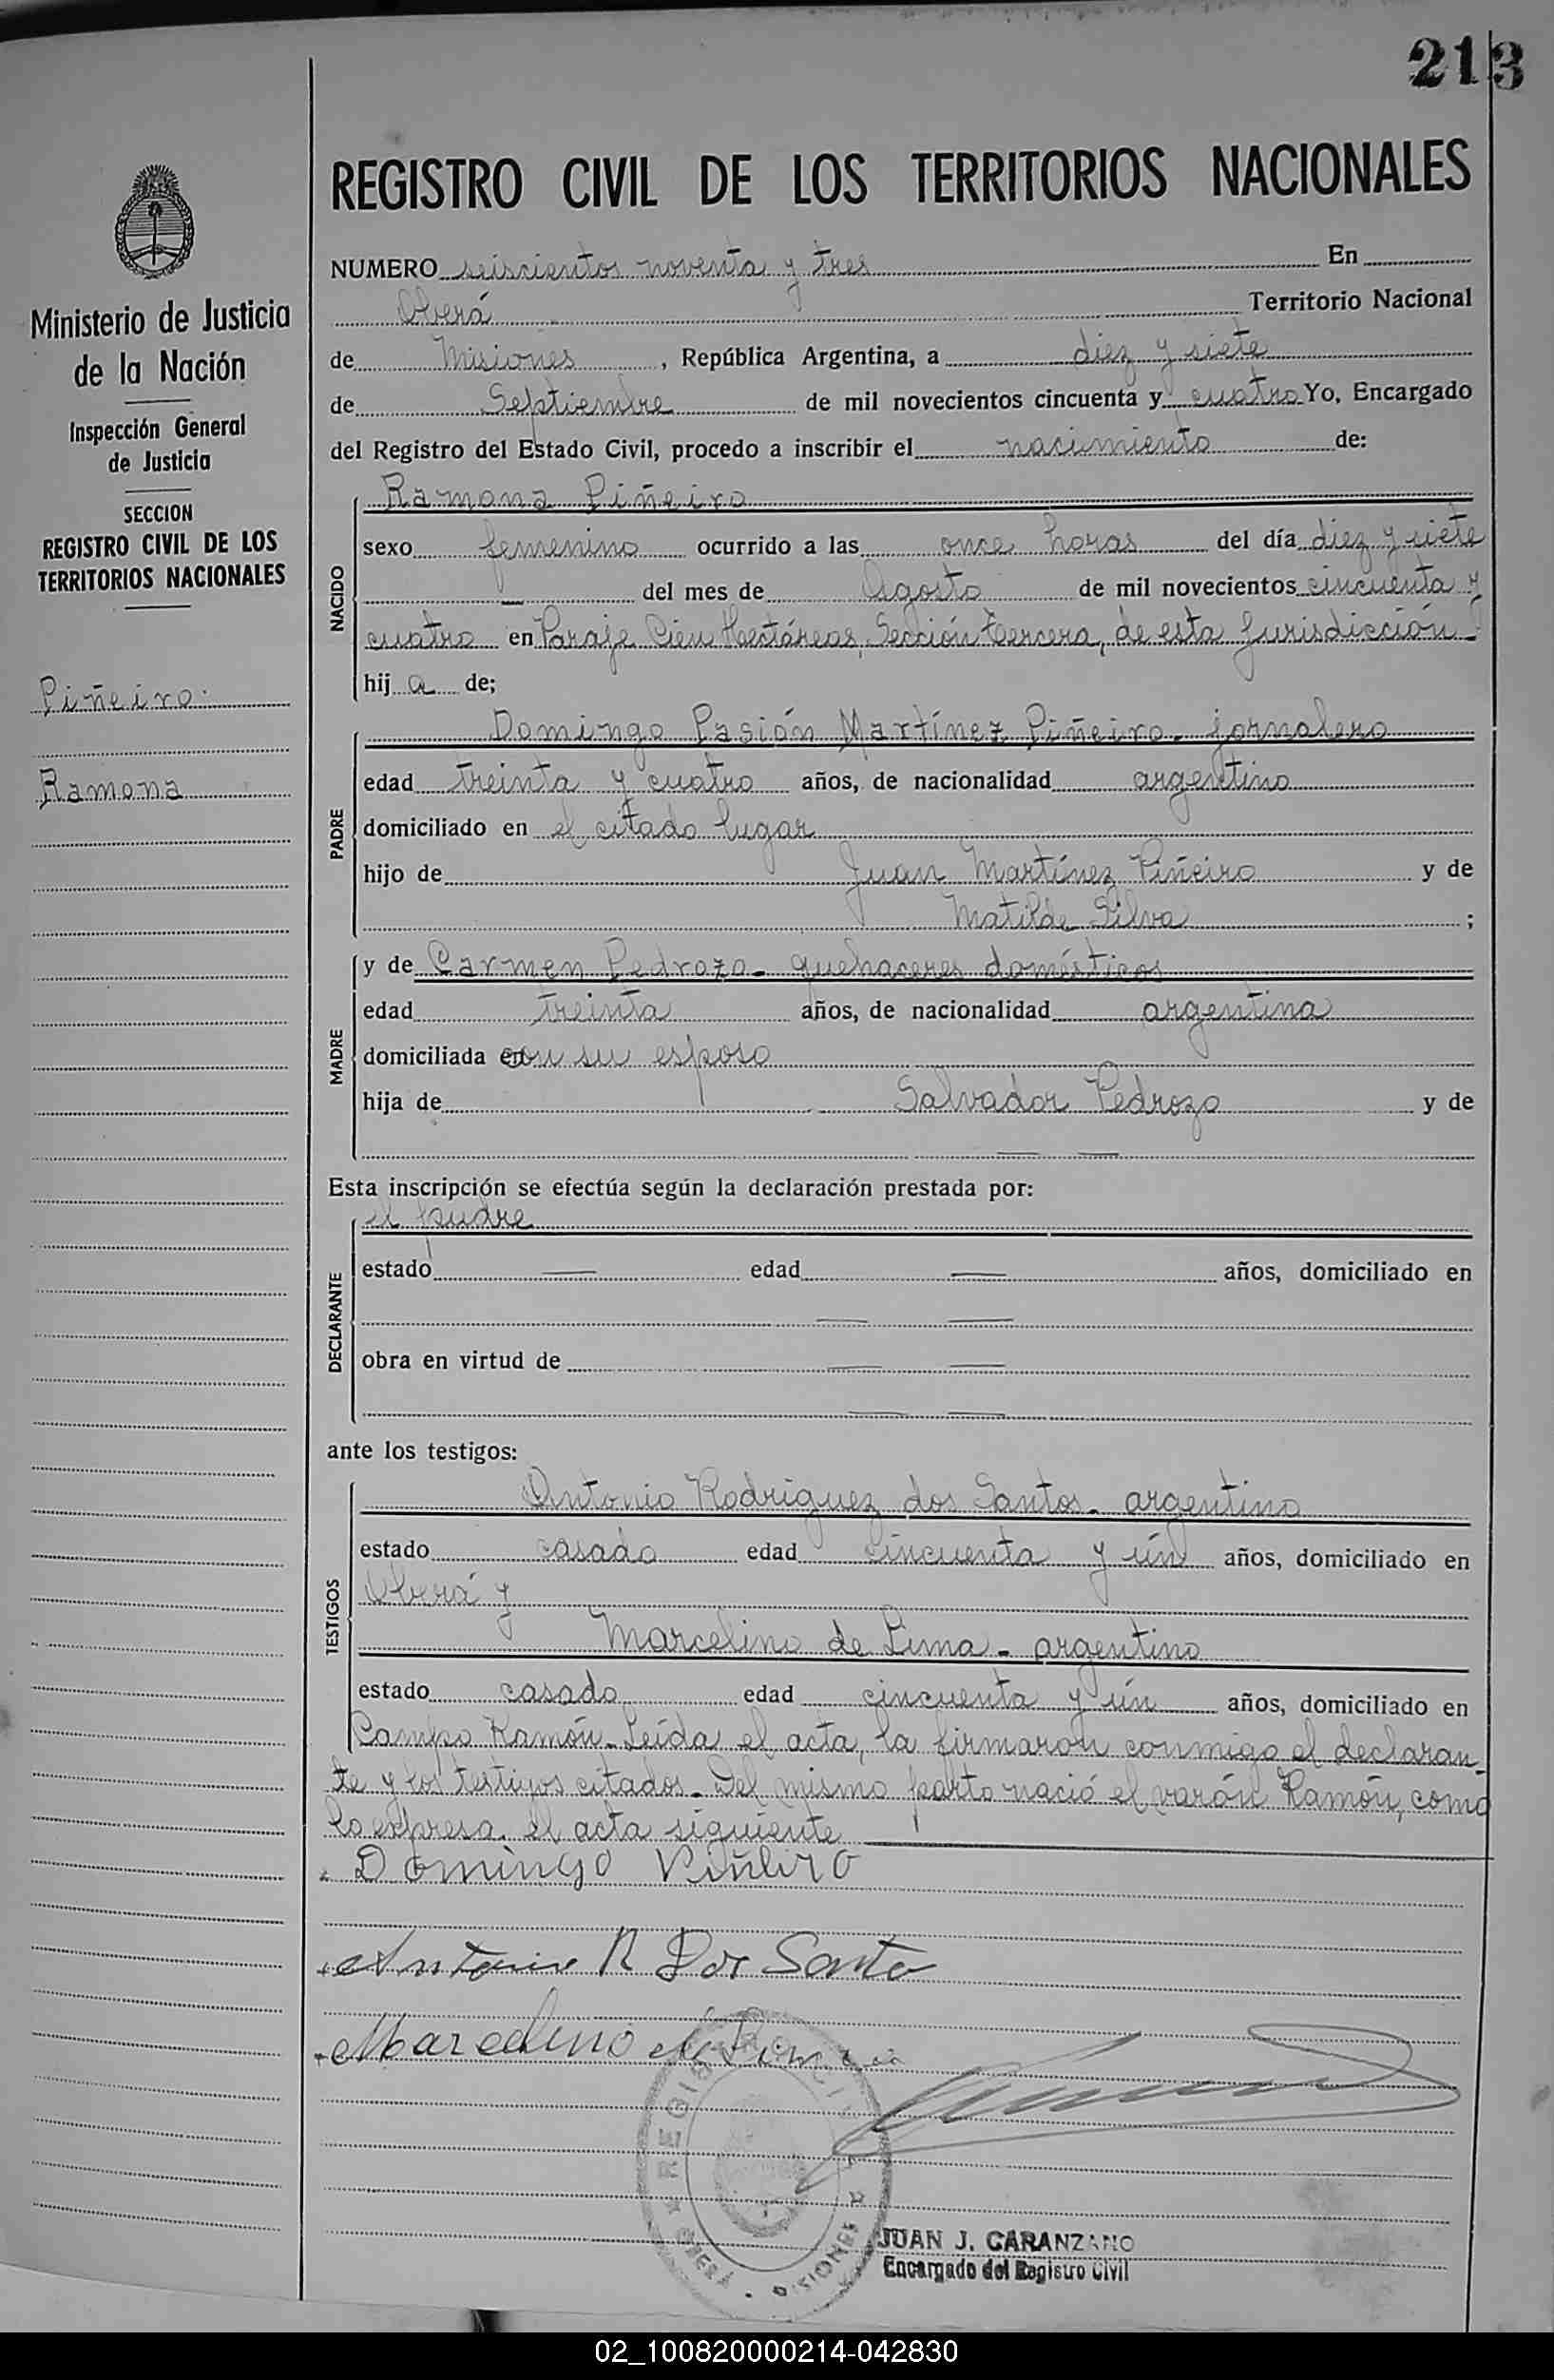 213
REGISTRO CIVIL DE LOS TERRITORIOS NACIONALES
Ministerio de Justicia
de la Nación
Inspección General
de Justicia
SECCION
REGISTRO CIVIL DE LOS
TERRITORIOS NACIONALES
Piñeiro.
Ramona
NUMERO seiscientos noventa y tres En
Oberá Territorio Nacional
de Misiones, República Argentina, a diez y siete
de Septiembre de mil novecientos cincuenta y cuatro Yo, Encargado
del Registro del Estado Civil, procedo a inscribir el nacimiento de:
NACIDO
Ramona Piñeiro
sexo femenino ocurrido a las once horas del día diez y siete
— del mes de Agosto de mil novecientos cincuenta y
cuatro en Paraje Cien Hectáreas, Sección tercera, de esta jurisdicción-
hij a de;
PADRE
Domingo Pasión Martínez Piñeiro- jornalero
edad treinta y cuatro años, de nacionalidad argentino
domiciliado en el citado lugar
hijo de Juan Martínez Piñeiro y de
Matilde Silva ;
MADRE
y de Carmen Pedrozo- quehaceres domésticos
edad treinta años, de nacionalidad argentina
domiciliada en con su esposo
hija de Salvador Pedrozo y de
— —
Esta inscripción se efectúa según la declaración prestada por:
DECLARANTE
el padre
estado — edad — años, domiciliado en
— —
obra en virtud de — —
— —
ante los testigos:
TESTIGOS
Antonio Rodriguez dos Santos- argentino
estado casado edad cincuenta y ún años, domiciliado en
Oberá y
Marcelino de Lima- argentino
estado casado edad cincuenta y ún años, domiciliado en
Campo Ramón- Leída el acta, la firmaron conmigo el declaran-
te y los testigos citados- Del mismo parto nació el varón Ramón, como
lo expresa el acta siguiente
Domingo Piñeiro
Antonio R Dos Santo
Marcelino de Lima
REGISTRO CIVIL
OBERÁ MISIONES
JUAN J. CARANZANO
Encargado del Registro Civil
02_100820000214-042830